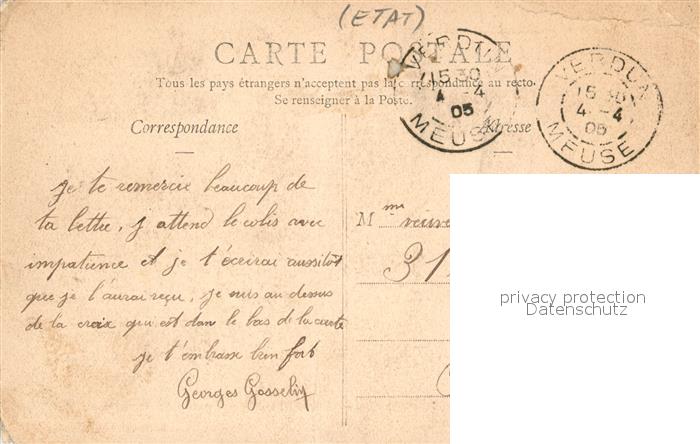 (ETAT)
CARTE POSTALE
Tous les pays étrangers n'acceptent pas la correspondance au recto.
Se renseigner à la Poste.
VERDUN
15 30
4 -4
05
MEUSE
VERDUN
15 30
4 -4
05
MEUSE
Correspondance
Adresse
je te remercie beaucoup de
ta lettre, j attend le colis avec
impatience et je t'écrirai aussitôt
que je l'aurai reçu, je suis au dessus
de la croix qui est dan le bas de la carte
je t'embrasse bien fort
Georges Gosselin
Mme veuve
31
privacy protection
Datenschutz